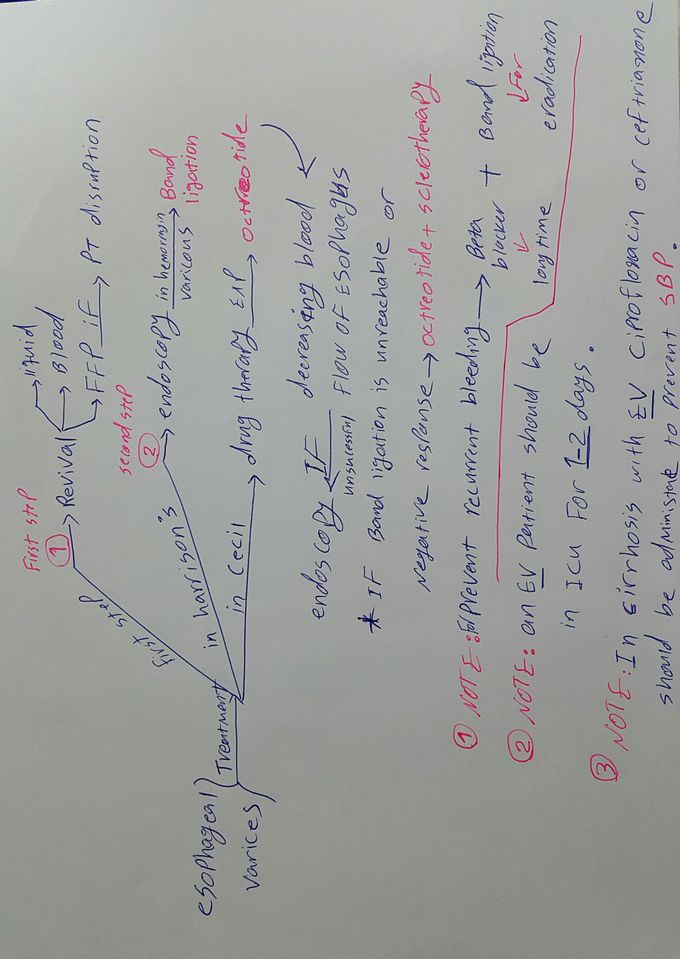 First step
① → Revival → liquid
→ Blood
→ FFP iF → PT disruption
first step
second step
② → endoscopy in hemorragin varicous → Band ligation
in harrison's
in Cecil → drug therapy → octreotide
esophageal varices } Treatment
decreasing blood flow of Esophagus
endoscopy ← IF unsucessful
* IF Band ligation is unreachable or
Negative response → octreotide + sclerotherapy
① NOTE: Prevent recurrent bleeding → Beta blocker + Band ligation
↓ longtime
↓ For eradication
② NOTE: an EV Patient should be
in ICU For 1-2 days.
③ NOTE: In cirrhosis with EV Ciprofloxacin or ceftriaxone
should be administate to prevent SBP.